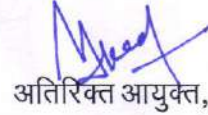 अतिरिक्त आयुक्त,